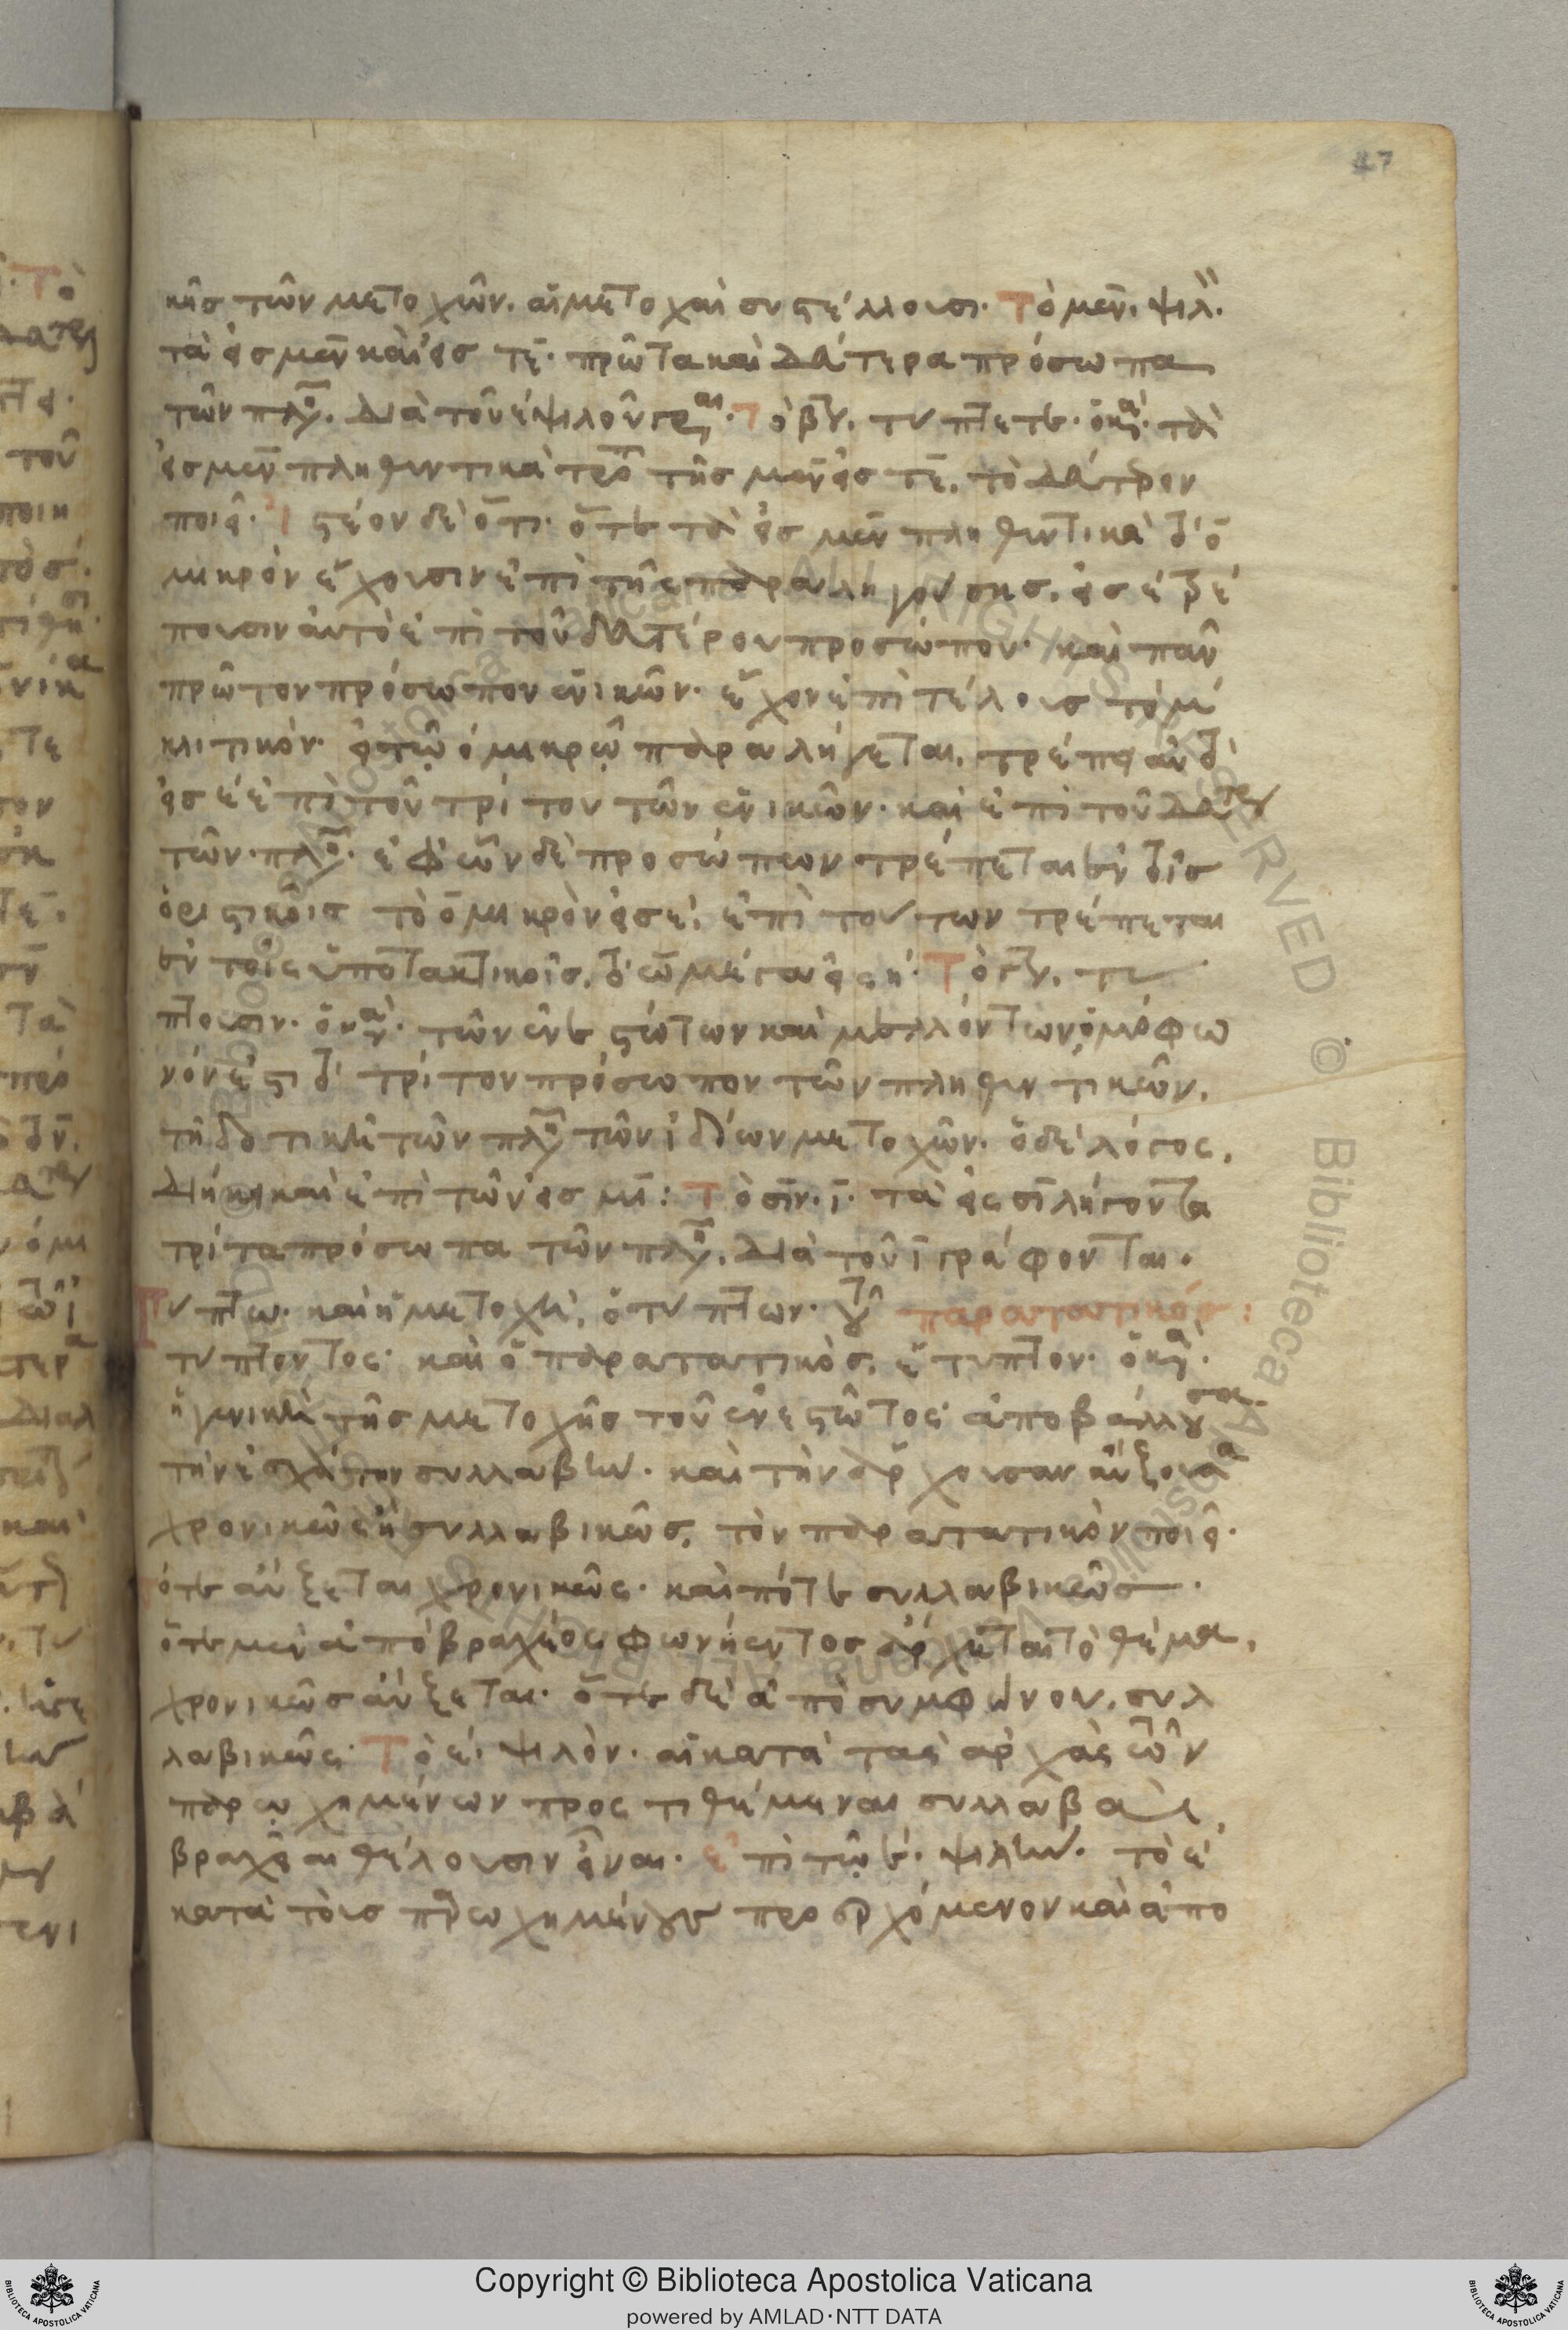 47
κῆς τῶν μετοχῶν. αἱ μετοχαὶ συστέλλουσι. Τὸ μεν. ψιλ.
τὰ εἰς μεν καὶ εἰς τε. πρῶτα καὶ δεύτερα πρόσωπα
τῶν πλη. διὰ τοῦ ἐψιλοῦ γρ. Τὸ β. τύπτετε.
εἰς μεν πληθυντικὰ τροπ τῆς μεν εἰς τε, τὸ δεύτερον
ποιεῖ. Ἰστέον δὲ ὅτι. ὅτε τὰ εἰς μεν πληθυντικὰ τὸ ο
μικρὸν ἔχουσιν ἐπὶ τῆς παραληγούσης. εἰς ε τρέ
πουσιν αὐτὸ ἐπὶ τοῦ δευτέρου προσώπου. καὶ πᾶν
πρῶτον πρόσωπον ἑνικῶν. ἔχον ἐπὶ τέλους τὸ μ
κλιτικὸν. εἰ τῷ ο μικρῷ παραλήγεται. τρέπει αὐτὸ
εἰς ε ἐπὶ τοῦ τρίτου τῶν ἑνικῶν. καὶ ἐπὶ τοῦ δευτερ
τῶν πλη. ἐφ ὧν δὲ προσώπων τρέπεται ἐν τοῖς
ὁριστικοῖς τὸ ο μικρὸν εἰς ε. ἐπὶ τούτων τρέπεται
ἐν τοῖς ὑποτακτικοῖς. τὸ ω μέγα εἰς η. Τὸ γ. τύ
πτουσιν. τῶν ἐνεστώτων καὶ μελλόντων ὁμόφω
νόν ἐστι τὸ τρίτον πρόσωπον τῶν πληθυντικῶν.
τῇ δοτικῇ τῶν πλη τῶν ἰδίων μετοχῶν. ὁ δὲ λόγος.
διήκει καὶ ἐπὶ τῶν εἰς μι: Τὸ σιν. ι. τὰ εἰς σι λήγοντα
τρίτα πρόσωπα τῶν πλη. διὰ τοῦ ι γράφονται.
Τύπτω. καὶ ἡ μετοχὴ, ὁ τύπτων. τοῦ παρατατικός:
τύπτοντος. καὶ ὁ παρατατικὸς, ἔτυπτον.
ἡ γενικὴ τῆς μετοχῆς τοῦ ἐνεστῶτος ἀποβάλλουσα
τὴν ἐσχάτην συλλαβὴν. καὶ τὴν ἄρχουσαν αὔξουσα
χρονικῶς ἢ συλλαβικῶς, τὸν παρατατικὸν ποιεῖ.
πότε αὔξεται χρονικῶς. καὶ πότε συλλαβικῶς.
ὅτε μεν ἀπὸ βραχέος φωνήεντος ἄρχεται τὸ θέμα,
χρονικῶς αὔξεται. ὅτε δὲ ἀπὸ συμφώνου. συλ
λαβικῶς. Τὸ ε. ψιλὸν. αἱ κατὰ τὰς ἀρχὰς τῶν
παρῳχημένων προστιθέμεναι συλλαβαὶ
βραχεῖαι θέλουσιν εἶναι. ἐπὶ τῷ ε. ψιλὴν. τὸ ε
κατὰ τοὺς παρωχημένους προερχόμενον καὶ ἀπο
Copyright © Biblioteca Apostolica Vaticana
powered by AMLAD·NTT DATA